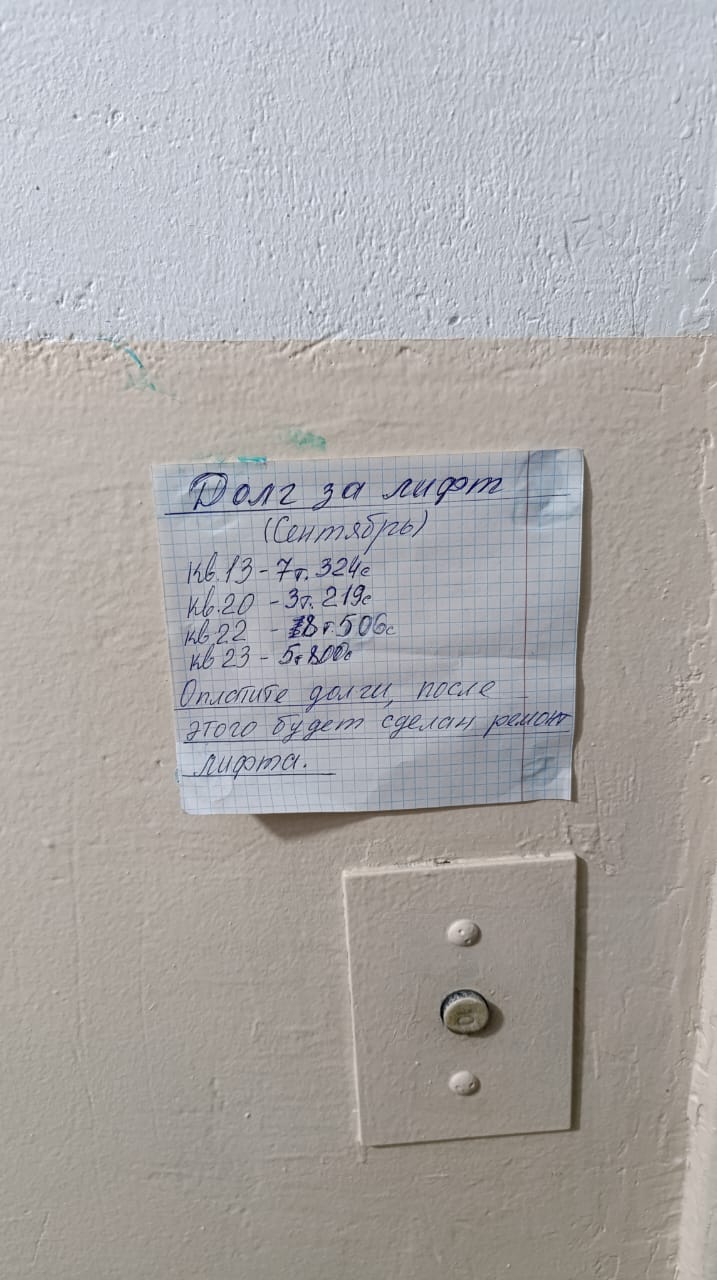 Долг за лифт
(Сентябрь)
кв.13 - 7т. 324с
кв.20 - 3т. 219с
кв 22 - 8т. 506с
кв 23 - 5т 800с
Оплатите долги, после
этого будет сделан ремонт
лифта.